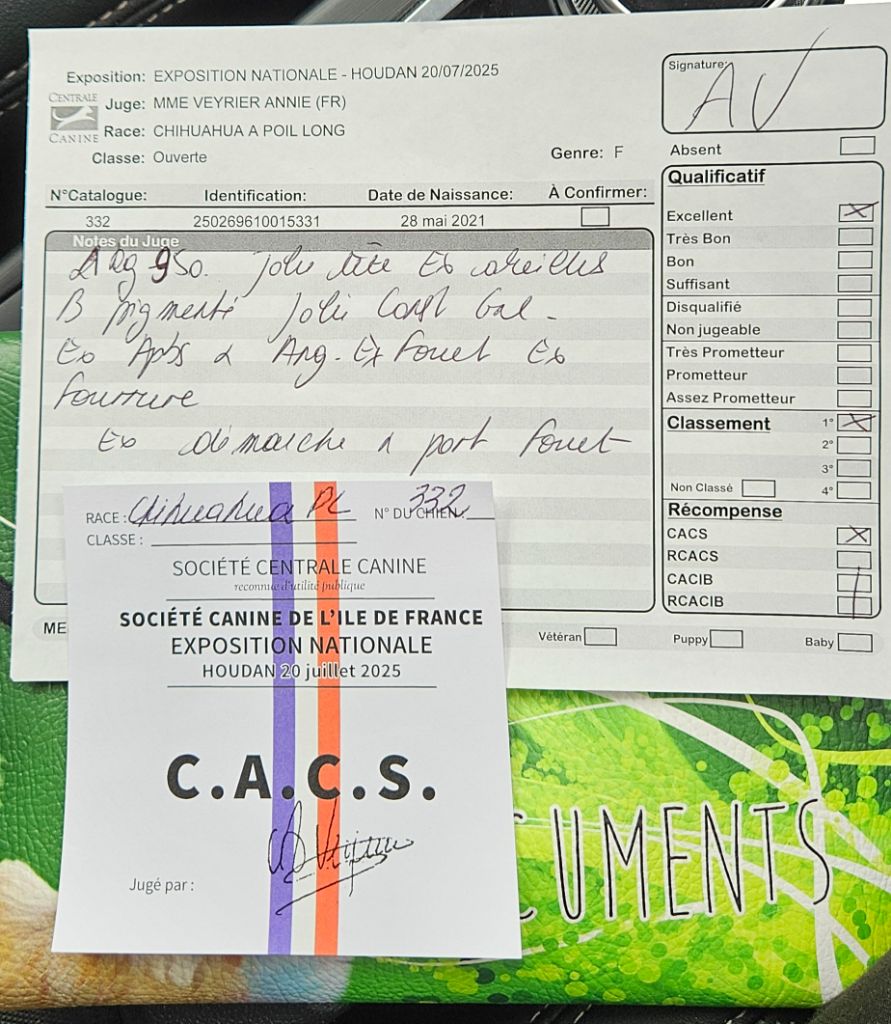 Exposition: EXPOSITION NATIONALE - HOUDAN 20/07/2025
CENTRALE
CANINE
Juge: MME VEYRIER ANNIE (FR)
Race: CHIHUAHUA A POIL LONG
Classe: Ouverte
Genre: F
N°Catalogue: Identification: Date de Naissance: À Confirmer:
332 250269610015331 28 mai 2021
Notes du Juge
950. Jolie tête Ex oreilles
B pigmenté Jolie Const Gal -
Ex Apbs & Ang. Ex fouet Ex
fourrure
Ex démarche & port fouet
ME
Vétéran
Puppy
Baby
Signature:
AV
Absent
Qualificatif
Excellent
Très Bon
Bon
Suffisant
Disqualifié
Non jugeable
Très Prometteur
Prometteur
Assez Prometteur
Classement 1°
2°
3°
Non Classé 4°
Récompense
CACS
RCACS
CACIB
RCACIB
RACE : Chihuahua PL N° DU CHIEN 332
CLASSE :
SOCIÉTÉ CENTRALE CANINE
reconnue d'utilité publique
SOCIÉTÉ CANINE DE L'ILE DE FRANCE
EXPOSITION NATIONALE
HOUDAN 20 juillet 2025
C.A.C.S.
Jugé par :
CUMENTS